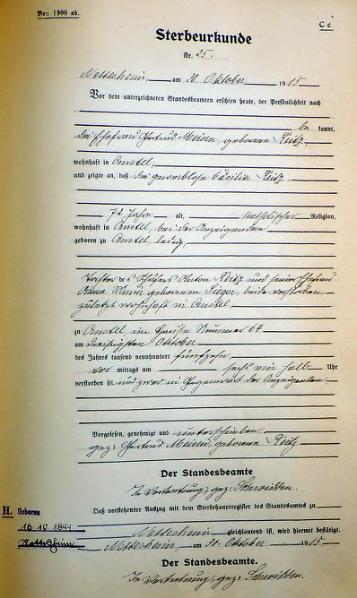 Bez. 1900 ab.
C c
Sterbeurkunde
Nr. 25.
Nettersheim, am 30. Oktober 1915
Vor dem unterzeichneten Standesbeamten erschien heute, der Persönlichkeit nach
be kannt,
die Ehefrau Gertrud Meisen, geborene Reitz,
wohnhaft in
und zeigte an, daß die gewerblose Cäcilia Reitz,
72 Jahre alt, katholischer Religion,
wohnhaft in bei der Anzeigenden
geboren zu ledig,
Tochter des Anton Reitz und seiner Ehefrau
Anna geborene beide verstorben,
zuletzt wohnhaft in
zu im Hause Nummer 64
am dreißigsten Oktober
des Jahrs tausend neunhundert fünfzehn
vor mittags um sechs ein halb Uhr
verstorben sei, und zwar in Gegenwart der Anzeigenden
Vorgelesen, genehmigt und unterschrieben
gez. Gertrud Meisen, geborene Reitz
Der Standesbeamte
In Vertretung, gez.
Daß vorstehender Auszug mit dem Sterbehauptregister des Standesamts zu
H. Geboren
Nettersheim gleichlautend ist, wird hiermit bestätigt.
Nettersheim, am 30. Oktober 1915
Der Standesbeamte.
In Vertretung, gez.